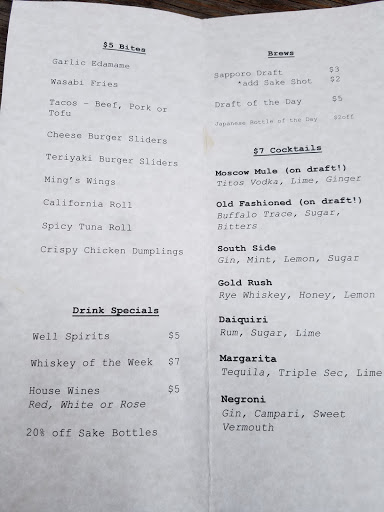 $5 Bites
Garlic Edamame
Wasabi Fries
Tacos – Beef, Pork or
Tofu
Cheese Burger Sliders
Teriyaki Burger Sliders
Ming's Wings
California Roll
Spicy Tuna Roll
Crispy Chicken Dumplings
Drink Specials
Well Spirits $5
Whiskey of the Week $7
House Wines $5
Red, White or Rose
20% off Sake Bottles
Brews
Sapporo Draft $3
*add Sake Shot $2
Draft of the Day $5
Japanese Bottle of the Day $2off
$7 Cocktails
Moscow Mule (on draft!)
Titos Vodka, Lime, Ginger
Old Fashioned (on draft!)
Buffalo Trace, Sugar,
Bitters
South Side
Gin, Mint, Lemon, Sugar
Gold Rush
Rye Whiskey, Honey, Lemon
Daiquiri
Rum, Sugar, Lime
Margarita
Tequila, Triple Sec, Lime
Negroni
Gin, Campari, Sweet
Vermouth